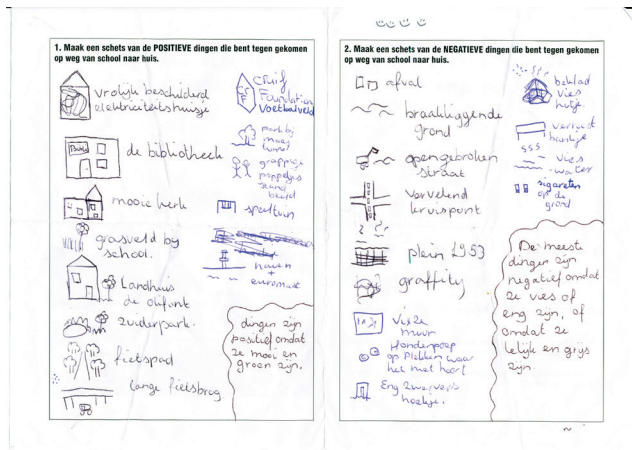 1. Maak een schets van de POSITIEVE dingen die bent tegen gekomen
op weg van school naar huis.
vrolijk beschilderd
elektriciteitshuisje
de bibliotheek
mooie kerk
grasveld bij
school.
Landhuis
de olifant
zuiderpark.
fietspad
lange fietsbrug
Cruif
Foundation
Voetbalveld
park bij
grappige
poppetjes
speeltuin
haven
+
euromast
dingen zijn
positief omdat
ze mooi en
groen zijn.
2. Maak een schets van de NEGATIEVE dingen die bent tegen gekomen
op weg van school naar huis.
afval
braakliggende
grond
opengebroken
straat
vervelend
kruispunt
plein 1953
graffity
Vieze
muur
Hondenpoep
op plekken waar
het niet hoort
Eng zwervers
hoekje.
beklad
vies
hutje
verroest
bankje
vies
water
sigaretten
op de
grond
De meeste
dingen zijn
negatief omdat
ze vies of
eng zijn, of
omdat ze
lelijk en grijs
zijn.